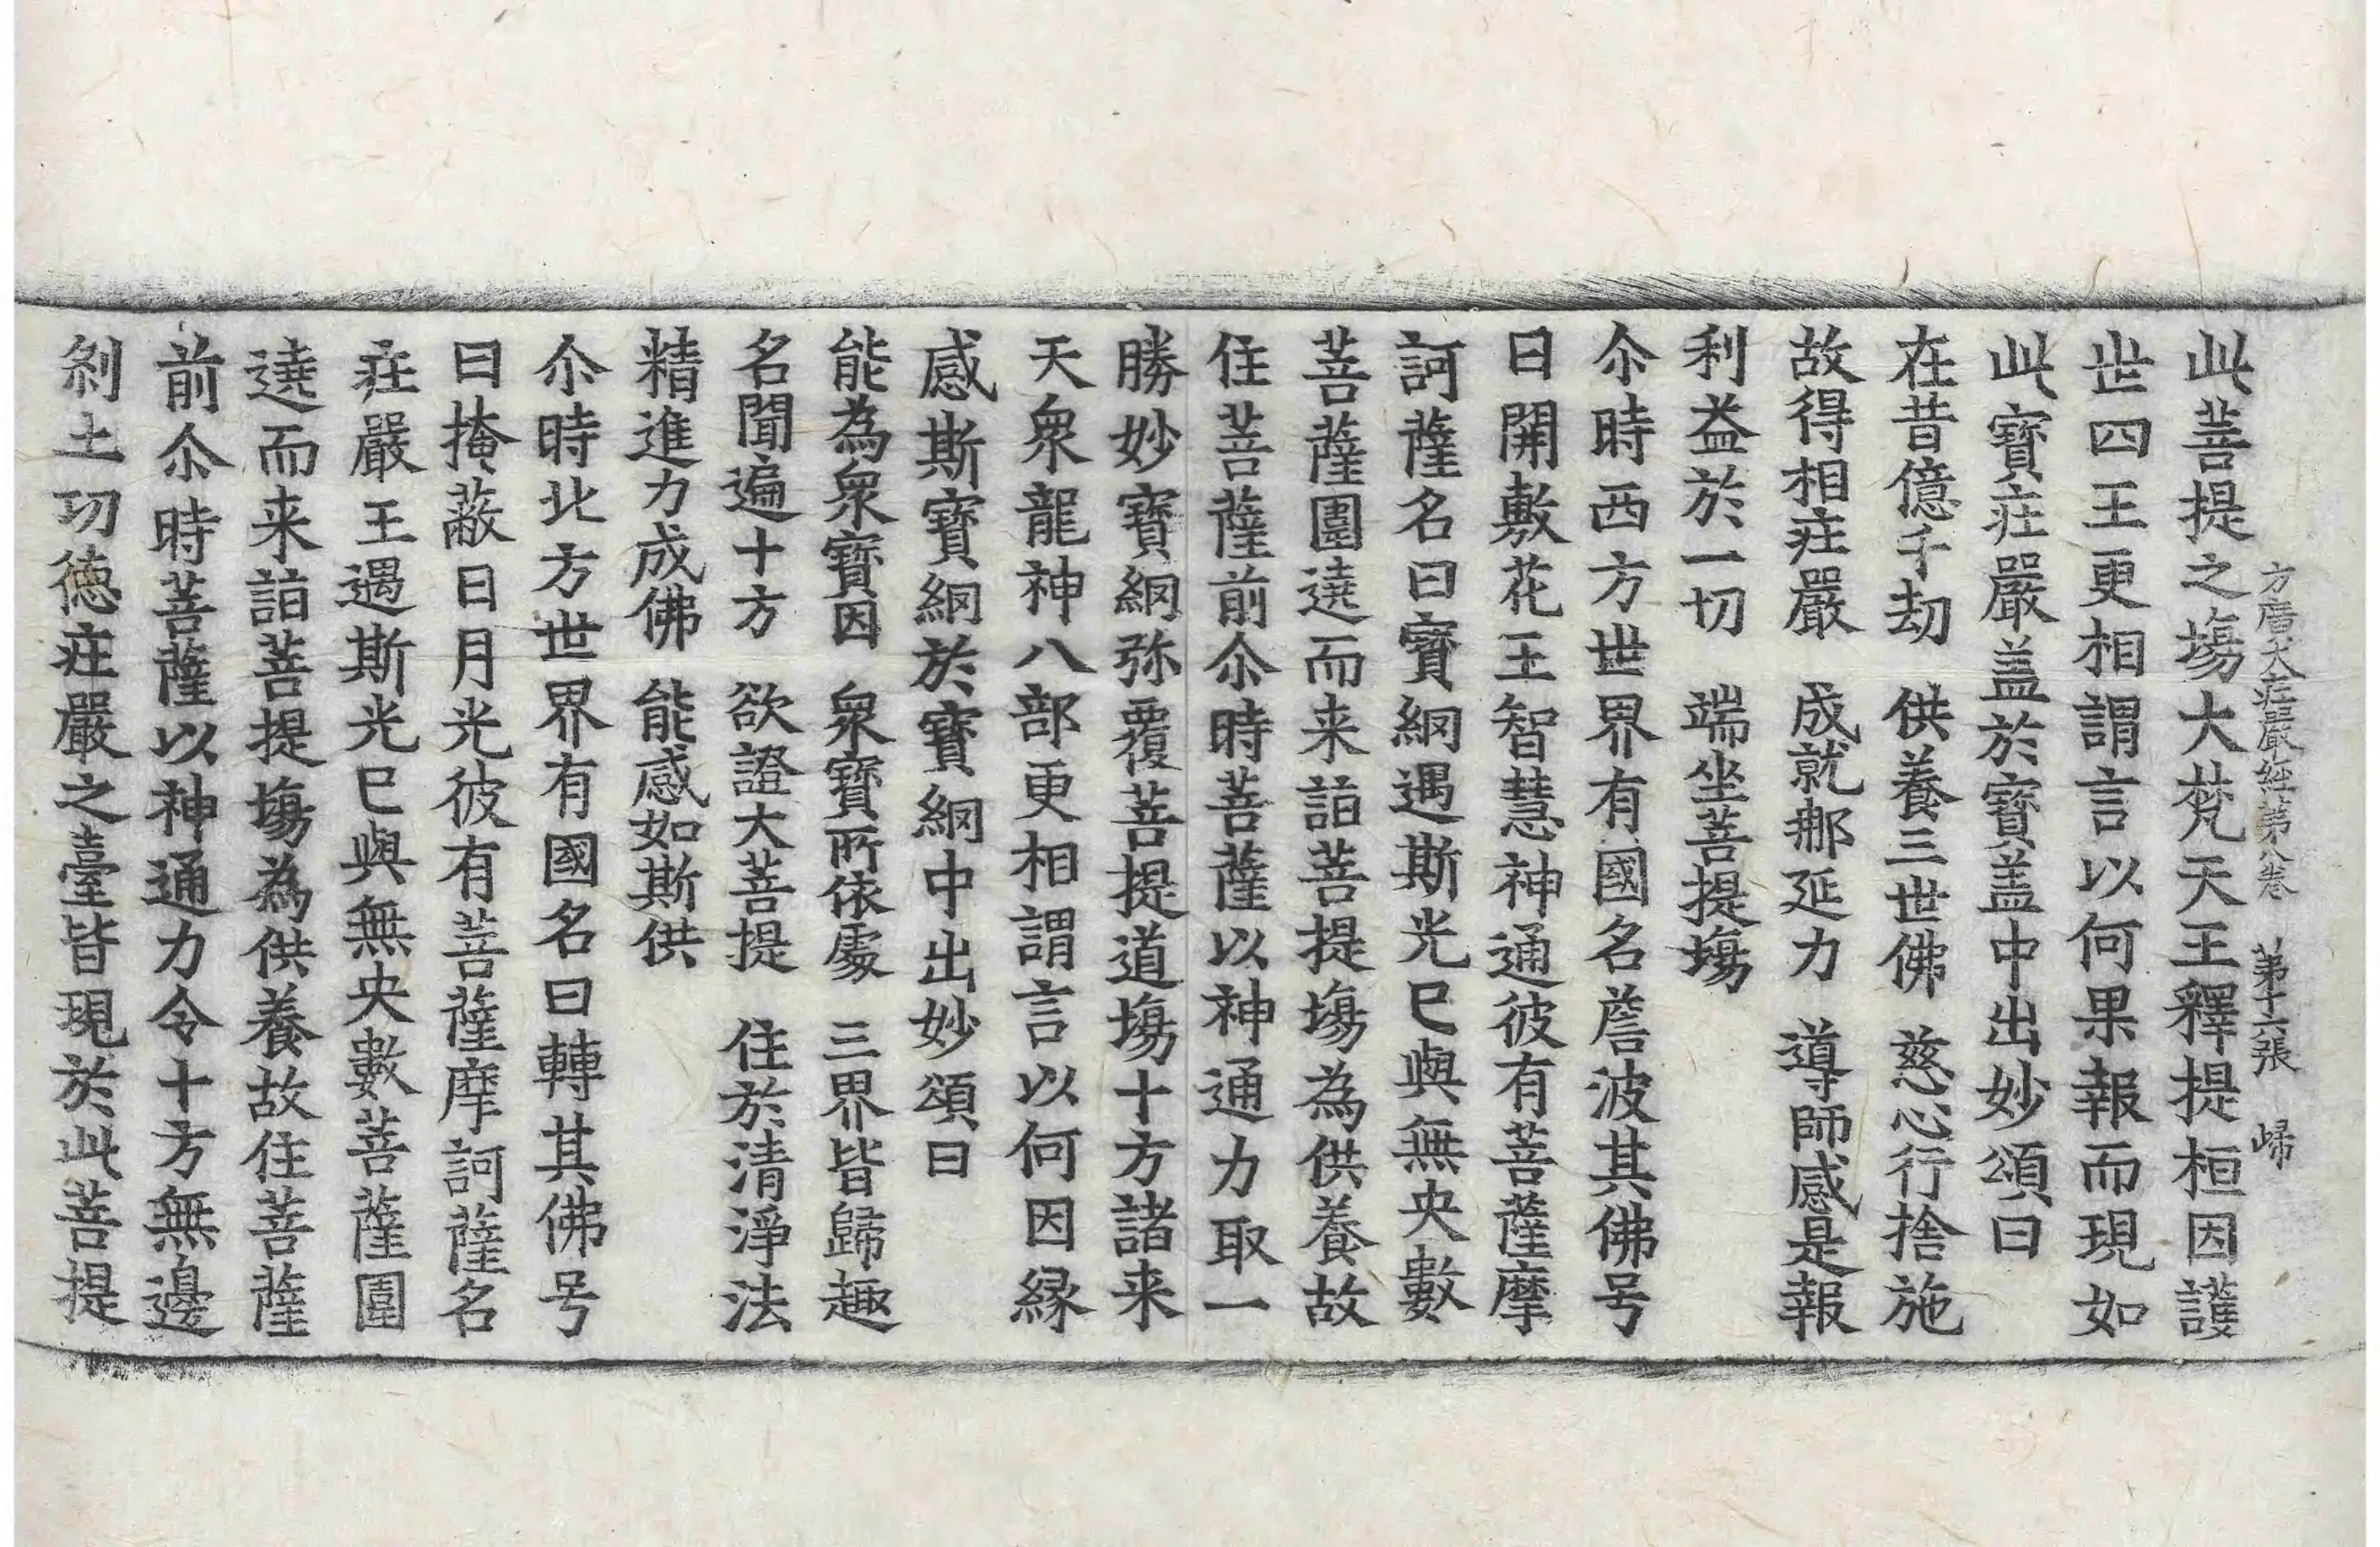 方廣大庄嚴經第八卷 第十六張 㱕
此菩提之場大梵天王釋提桓因護
世四王更相謂言以何果報而現如
此寶庄嚴盖於寶盖中出妙頌曰
在昔億千劫 供養三世佛 慈心行捨施
故得相庄嚴 成就那延力 導師感是報
利益於一切 端坐菩提場
尒時西方世界有國名薝波其佛号
曰開敷花王智慧神通彼有菩薩摩
訶薩名曰寶網遇斯光已與無央數
菩薩圍遶而来詣菩提場為供養故
住菩薩前尒時菩薩以神通力取一
勝妙寶網弥覆菩提道場十方諸来
天衆龍神八部更相謂言以何因縁
感斯寶網於寶網中出妙頌曰
能為衆寶因 衆寶所依處 三界皆歸趣
名聞遍十方 欲證大菩提 住於清淨法
精進力成佛 能感如斯供
尒時北方世界有國名曰轉其佛号
曰掩蔽日月光彼有菩薩摩訶薩名
庄嚴王遇斯光已與無央數菩薩圍
遶而来詣菩提場為供養故住菩薩
前尒時菩薩以神通力令十方無邊
刹土切德庄嚴之臺皆現於此菩提